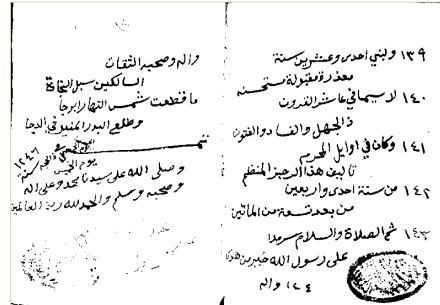 ١٣٩ ولبني احدى وعشرين سنة
معذرة مقبولة مستحسنه
١٤٠ لا سيما في عاشر القرون
ذي الجهل والفساد والفتون
١٤١ وكان في اوايل المحرم
تاليف هذا الرجز المنظم
١٤٢ من سنة احدى واربعين
من بعد تسعة من المائين
١٤٣ ثم الصلاة والسلام سرمدا
على رسول الله خير من هدى
١٤٤ واله
واله وصحبه الثقات
السالكين سبل النجاة
ما قطعت شمس النهار ابرجا
وطلع البدر المنير في الدجا
تمت
يوم الخميس
سنة ١٢٤٦
وصلى الله على سيدنا محمد وعلى اله
وصحبه وسلم والحمد لله رب العالمين